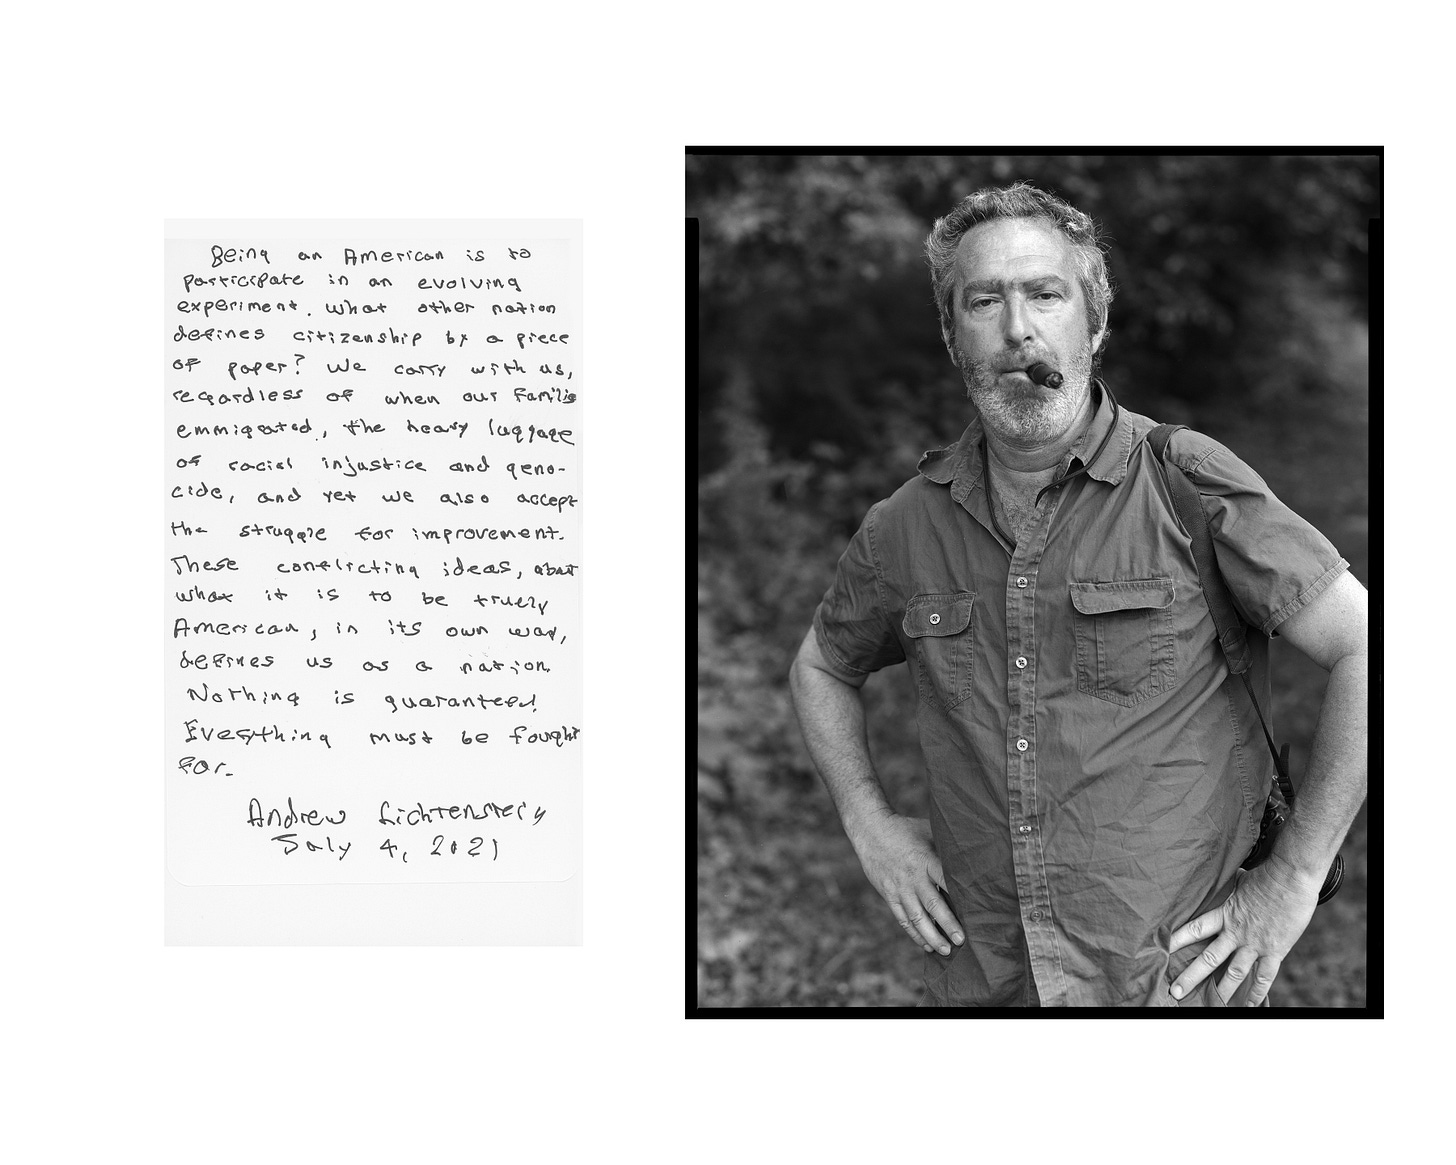 Being an American is to
participate in an evolving
experiment. What other nation
defines citizenship by a piece
of paper? We carry with us,
regardless of when our familie
emmigrated, the heavy luggage
of racial injustice and geno-
cide, and yet we also accept
the struggle for improvement.
These conflicting ideas, about
what it is to be truely
American, in its own way,
defines us as a nation.
Nothing is guaranteed!
Eveything must be fought
for.
Andrew Lichtenstein
July 4, 2021